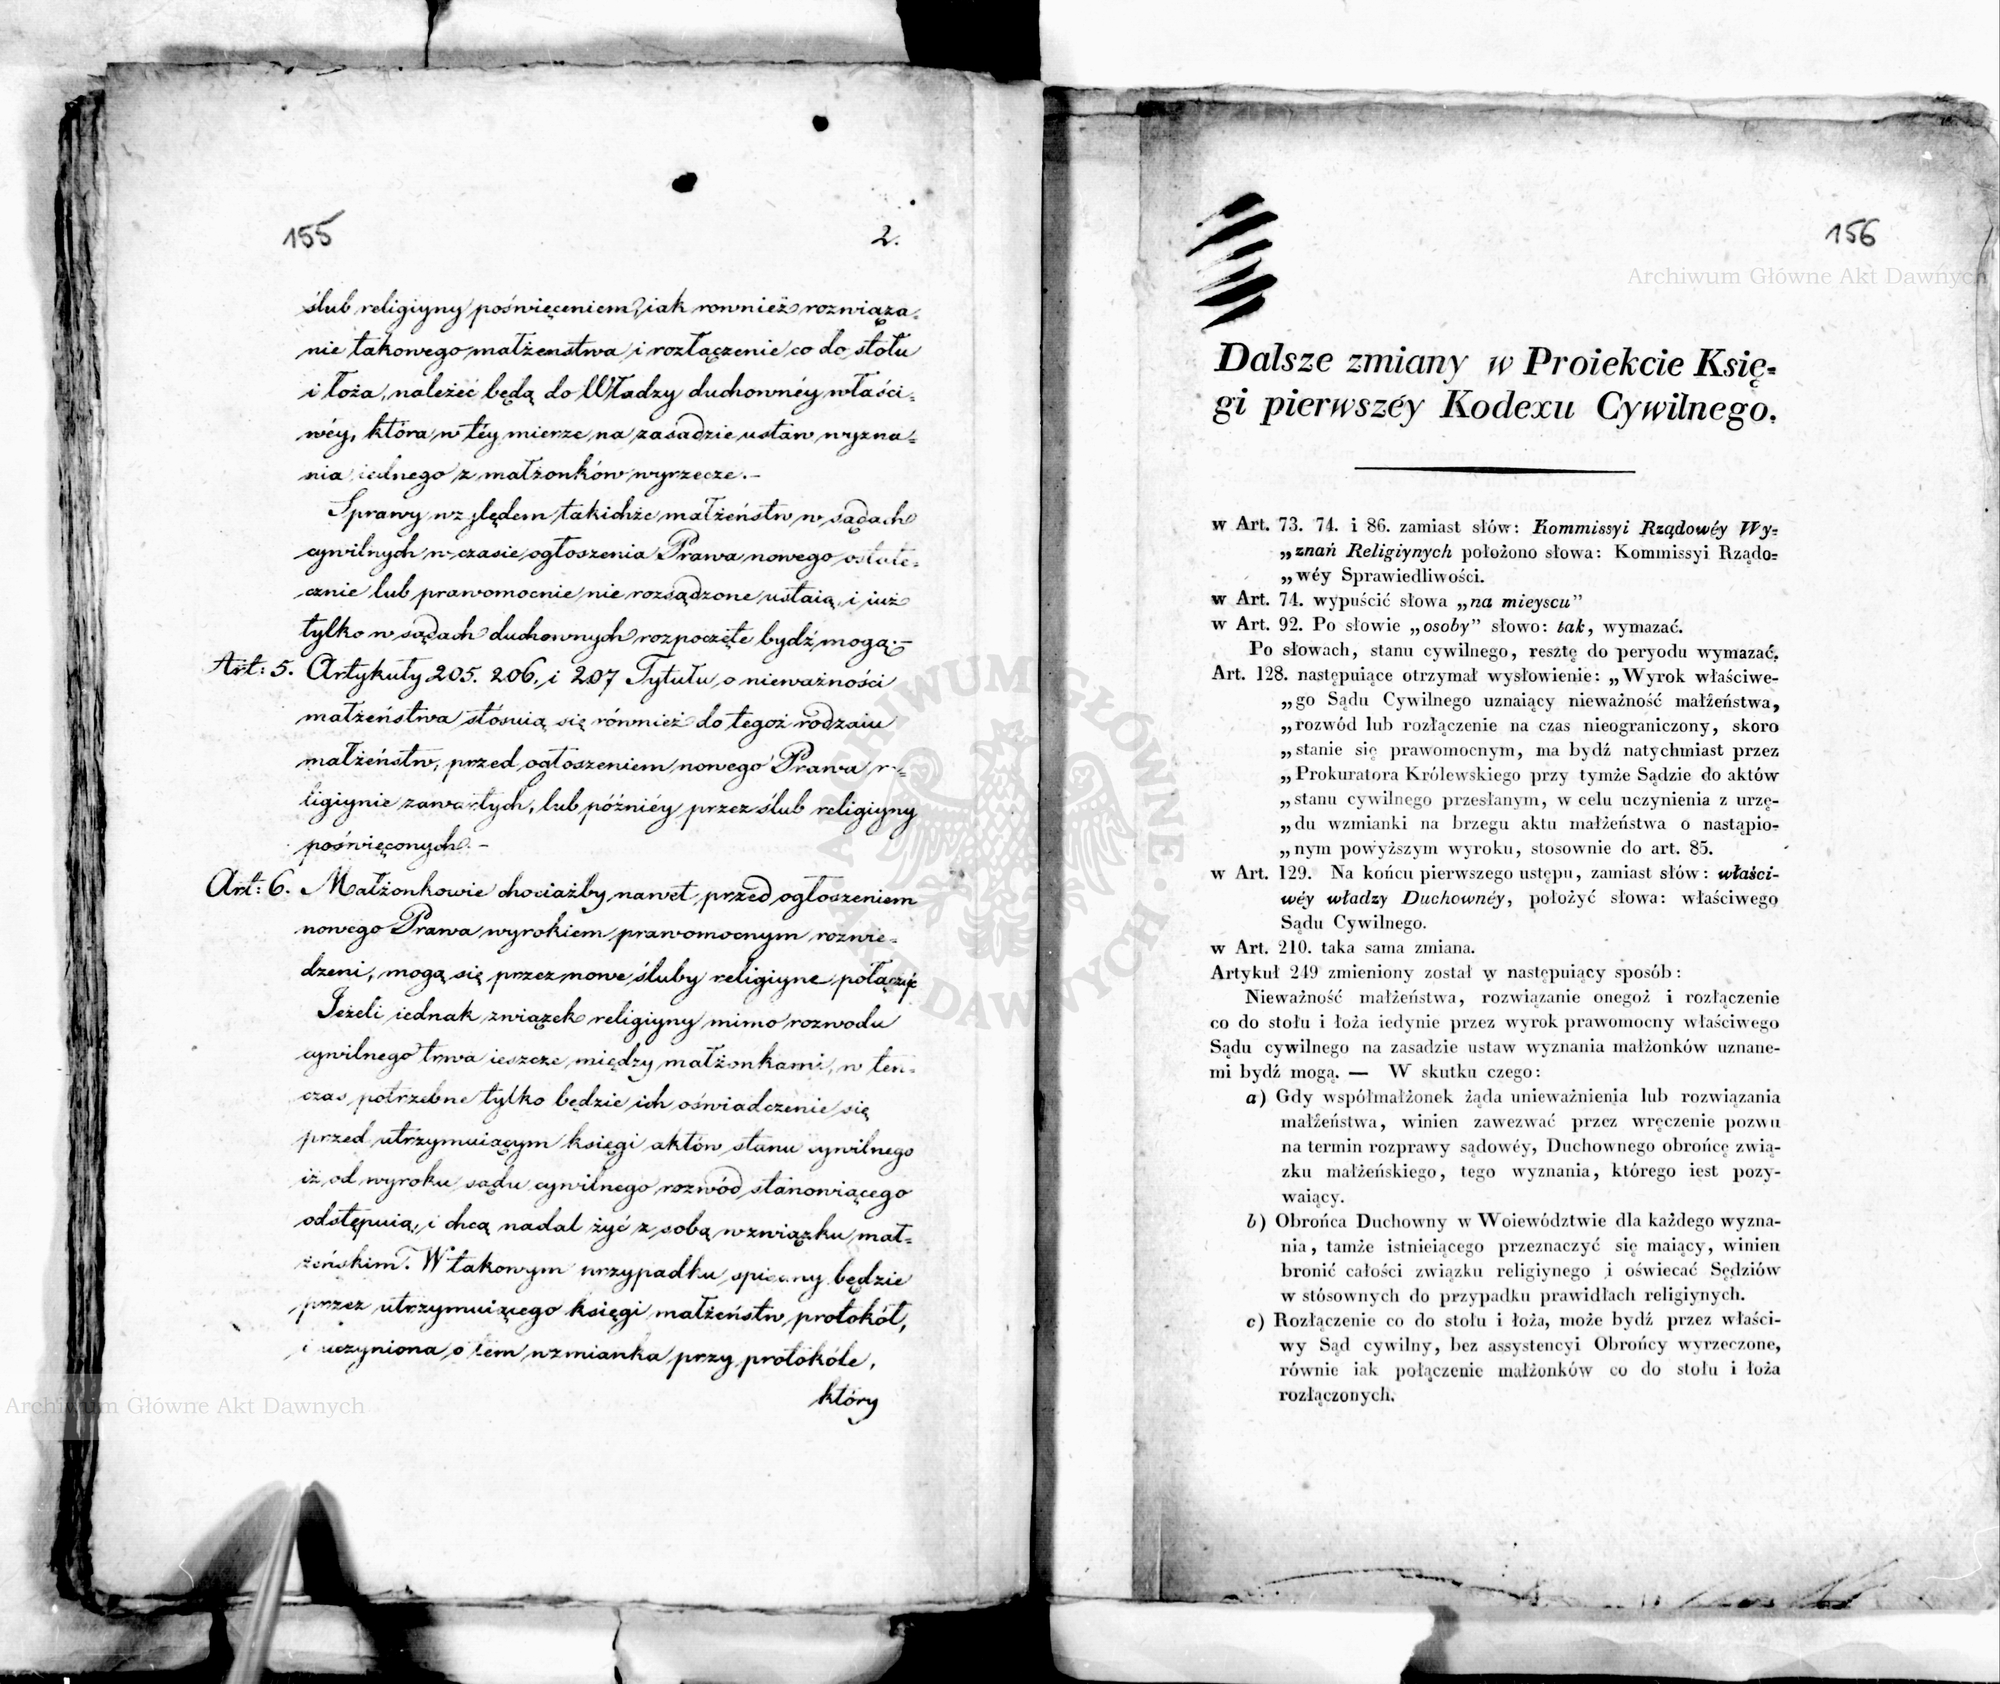 155
2.
ślub religiyny poświęceniem, iak rownież rozwiąza-
nie takowego małżenstwa i rozłączenie co do stołu
i łoża, należeć będą do Władzy duchownéy właści-
wéy, która w téy mierze na zasadzie ustaw wyzna-
nia iednego z małżonków wyrzecze.—
Sprawy względem takichże małżeństw w sądach
cywilnych w czasie ogłoszenia Prawa nowego ostate-
cznie lub prawomocnie nie rozsądzone ustaią, i iuż
tylko w sądach duchownych rozpoczęte bydź mogą.—
Art: 5. Artykuły 205. 206. i 207 Tytułu o nieważności
małżeństwa stósuią się również do tegoż rodzaiu
małżeństw, przed ogłoszeniem nowego Prawa re-
ligiynie zawartych, lub późniéy przez ślub religiyny
poświęconych.—
Art: 6. Małżonkowie chociażby nawet przed ogłoszeniem
nowego Prawa wyrokiem prawomocnym rozwie-
dzeni, mogą się przez nowe śluby religiyne połączyć
Jeżeli iednak związek religiyny mimo rozwodu
cywilnego trwa ieszcze między małżonkami, w ten-
czas potrzebne tylko będzie ich oświadczenie się
przed utrzymuiącym księgi aktów stanu cywilnego
iż od wyroku sądu cywilnego rozwód stanowiącego
odstępuią, i chcą nadal żyć z sobą w związku mał-
żeńskim. W takowym przypadku spisany będzie
przez utrzymuiącego księgi małżeństw protokół,
i uczyniona o tém wzmianka przy protokóle,
który
156
Dalsze zmiany w Proiekcie Księ-
gi pierwszéy Kodexu Cywilnego.
w Art. 73. 74. i 86. zamiast słów: Kommissyi Rządowéy Wy-
„znań Religiynych położono słowa: Kommissyi Rządo-
„wéy Sprawiedliwości.
w Art. 74. wypuścić słowa „na mieyscu”
w Art. 92. Po słowie „osoby” słowo: tak, wymazać.
Po słowach, stanu cywilnego, resztę do peryodu wymazać.
Art. 128. następuiące otrzymał wysłowienie: „Wyrok właściwe-
„go Sądu Cywilnego uznaiący nieważność małżeństwa,
„rozwód lub rozłączenie na czas nieograniczony, skoro
„stanie się prawomocnym, ma bydź natychmiast przez
„Prokuratora Królewskiego przy tymże Sądzie do aktów
„stanu cywilnego przesłanym, w celu uczynienia z urzę-
„du wzmianki na brzegu aktu małżeństwa o nastąpio-
„nym powyższym wyroku, stosownie do art. 85.
w Art. 129. Na końcu pierwszego ustępu, zamiast słów: właści-
wéy władzy Duchownéy, położyć słowa: właściwego
Sądu Cywilnego.
w Art. 210. taka sama zmiana.
Artykuł 249 zmieniony został w następuiący sposób:
Nieważność małżeństwa, rozwiązanie onegoż i rozłączenie
co do stołu i łoża iedynie przez wyrok prawomocny właściwego
Sądu cywilnego na zasadzie ustaw wyznania małżonków uznane-
mi bydź mogą. — W skutku czego:
a) Gdy współmałżonek żąda unieważnienia lub rozwiązania
małżeństwa, winien zawezwać przez wręczenie pozwu
na termin rozprawy sądowéy, Duchownego obrońcę zwią-
zku małżeńskiego, tego wyznania, którego iest pozy-
waiący.
b) Obrońca Duchowny w Woiewództwie dla każdego wyzna-
nia, tamże istnieiącego przeznaczyć się maiący, winien
bronić całości związku religiynego i oświecać Sędziów
w stósownych do przypadku prawidłach religiynych.
c) Rozłączenie co do stołu i łoża, może bydź przez właści-
wy Sąd cywilny, bez assystencyi Obrońcy wyrzeczone,
równie iak połączenie małżonków co do stołu i łoża
rozłączonych.
Archiwum Główne Akt Dawnych
Archiwum Główne Akt Dawnych
ARCHIWUM GŁÓWNE AKT DAWNYCH